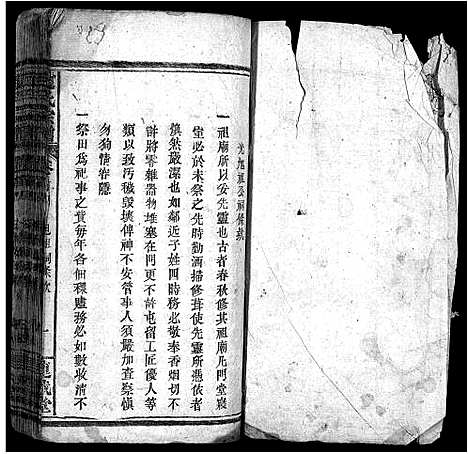 光旭祖公祠條款
一祖廟所以安先靈也古者春秋修其祖廟凡門堂寢
室必於未祭之先時勤洒掃修葺使先靈所憑依者
煥然嚴潔也如鄰近子姓四時務必敬奉香烟切不
許將零雜器物堆塞在門更不許屯留工匠優人等
類以致污穢毀壞俾神不安管事人須嚴加查察愼
勿狥情容隱
一祭田爲祀事之資每年各佃租賦務必如數收清不
祠條款
一
堂